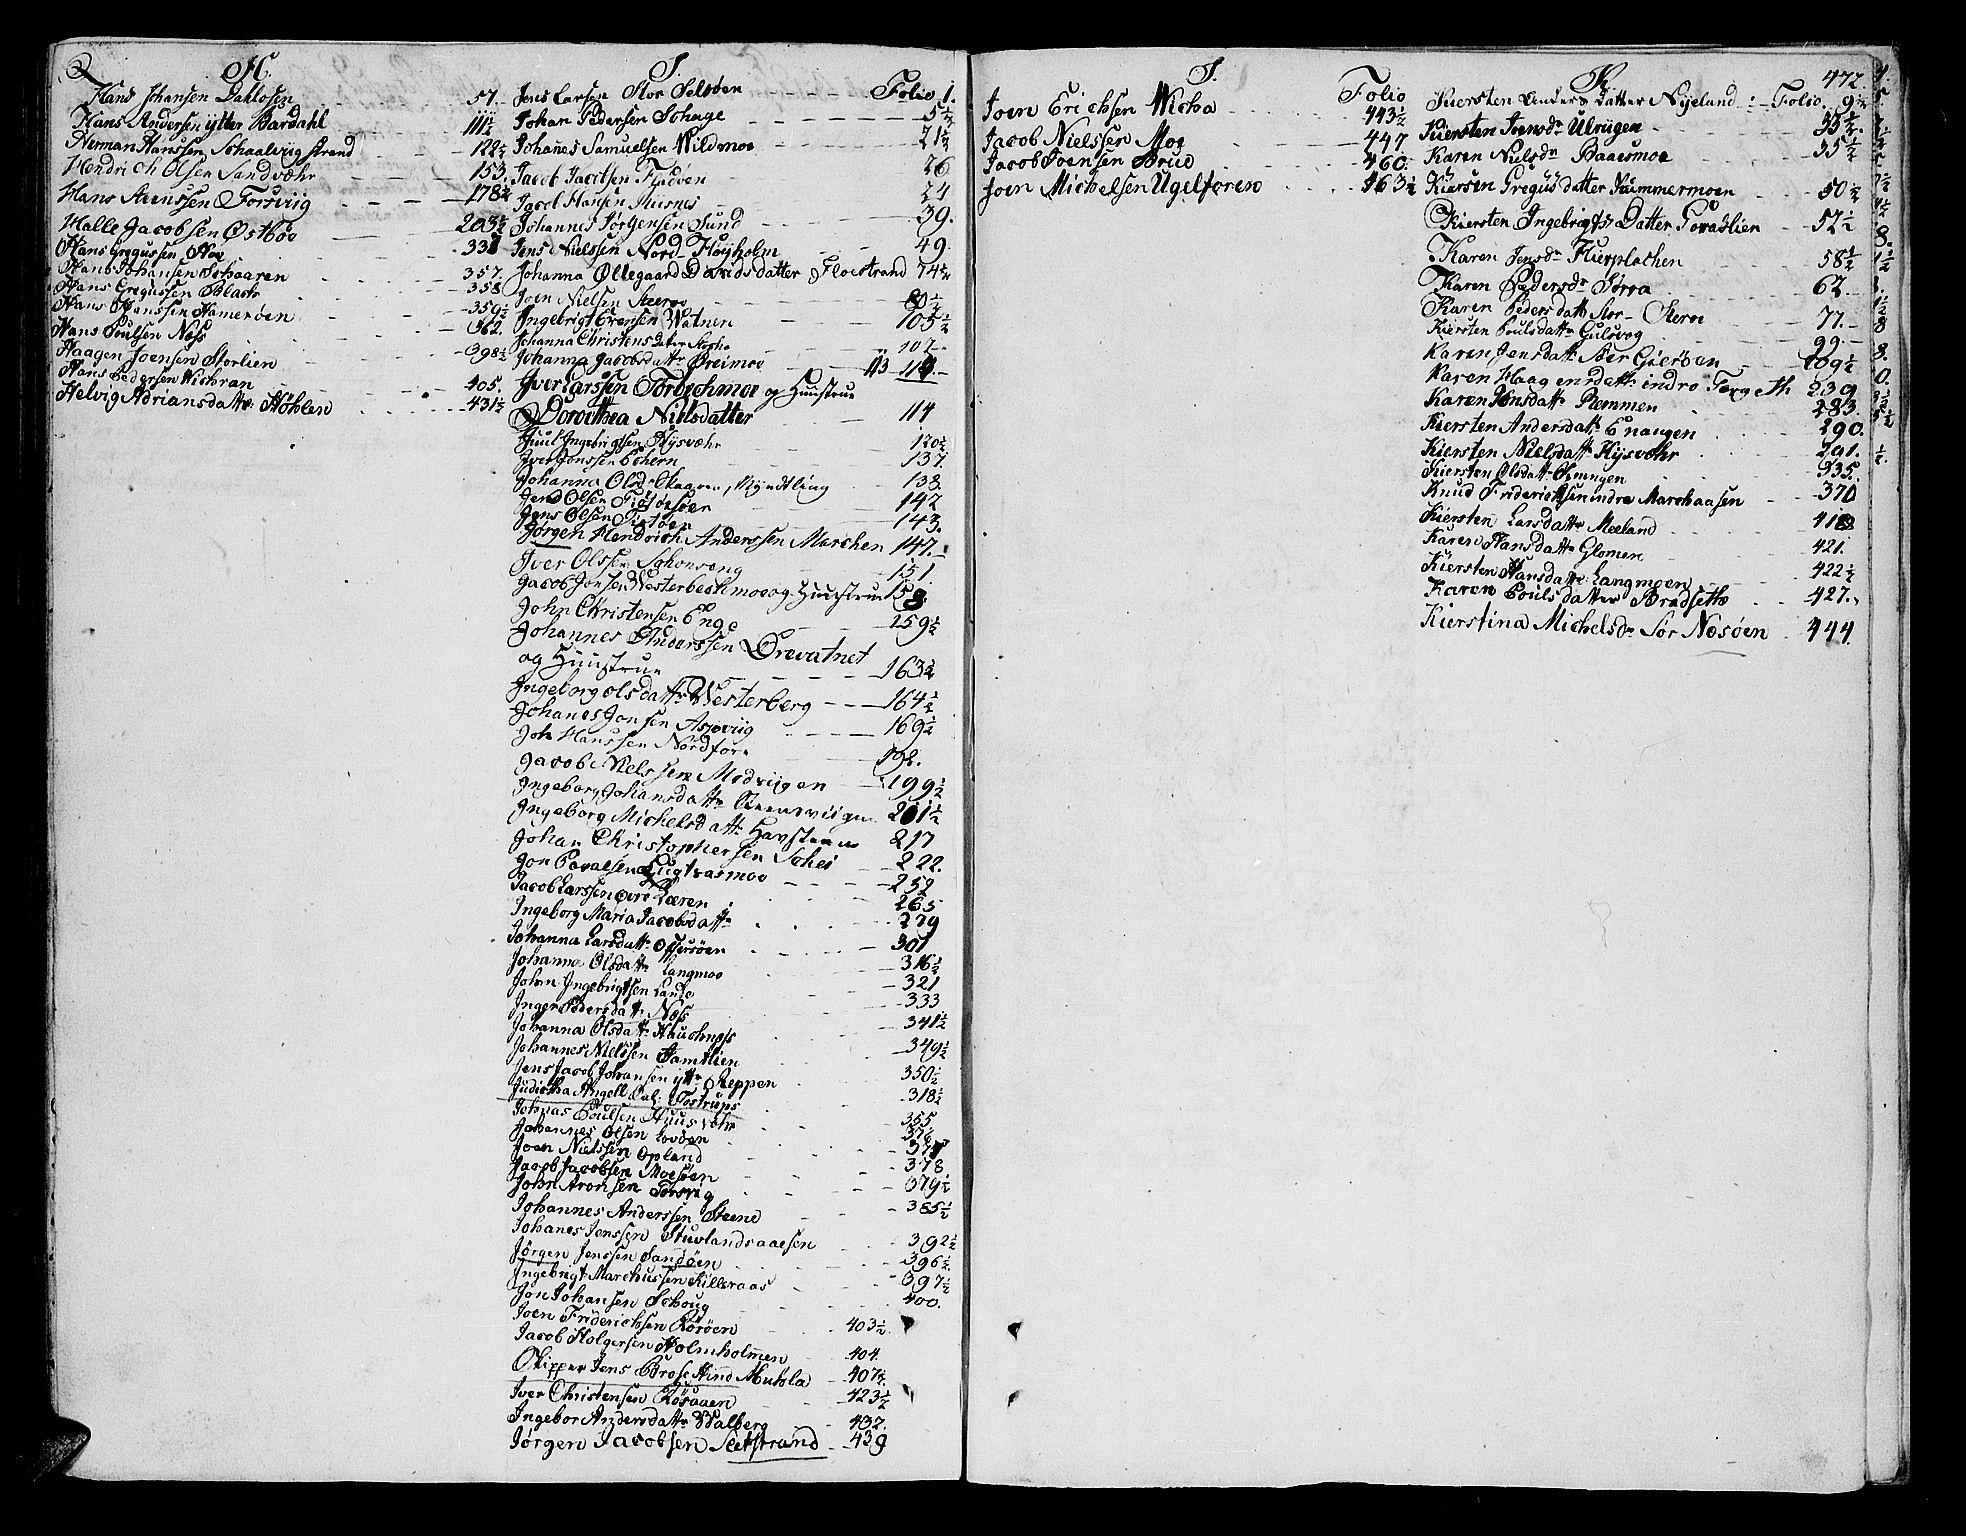 H.
Hans Johansen Dahlosen 57.
Hans Andersen ytter Bardahl 111½
Herman Hanssen Schaalvig strand 122½
Hendrich Olsen Sandvæhr 153.
Hans Steenssen Forsviig 178½
Halle Jacobsen Østbøe 203½
Hans Gregussen Moe 337
Hans Johansen Schaaren 357.
Hans Gregussen 358
Hans Hanssen Hamerøen 359½
Hans Poulsen Næs 362.
Haagen Joensen Storlien 398½
Hans Pedersen Wichran 405.
Helvig Adriansdattr Høhlen 431½
J.
Jens Larsen Stor Selsøen Folio 1.
Johan Pedersen Schage 5½
Johanes Samuelsen Wildmoe 21½
Jacob Jacobsen 26
Jacob Hansen Husnes 24
Johannes Jørgensen Sund 39.
Jens Nielssen Nord Høyholm 49.
Johanna Øllegaard Davidsdatter Floestrand 74½
Joen Nielsen 80½
Ingebrigt Evensen Watnen 105½
Johanna Christensdatter 107
Johanna Jacobsdattr Breimoe 113
Iver Larssen Forbechmoe og Huustrue
Dorothea Nielsdatter 114
Juul Ingebrigtsen Hysvæhr 120½
Iver Jonssen Echern 137.
Johanna Olsdr Skaaren, Myndtling 138.
Jens Olsen Tiøtøesøen 142
Jens Olsen Tiøtøen 143.
Jørgen Hendrich Anderssen Marchen 147.
Iver Olssen Schonseng 151.
Jacob Jonsen Westerbechmoe og Huustrue 158.
John Christensen Enge 159½
Johannes Anderssen Drevatnet
og Huustrue 163½
Ingeborg Olsdattr Westerberg 164½
Johanes Jonsen Aspviig 169½
Joh Hanssen Nordfore 192.
Jacob Nelssen Modviigen 199½
Ingeborg Johansdattr 201½
Ingeborg Michelsdattr Havstenes 217
Johan Christophersen Schei 222.
Jon Povelsen Lugtvasmoe 252
Jacob Larssen øvre Læren 265
Ingeborg Maria Jacobsdattr 279
Johanna Larsdattr Offersøen 301
Johanna Olsdattr Langmoe 316½
John Ingebrigtsen Lande 321
Inger Pedersdattr Næs 333
Johanna Olsdattr Hauchnæs 341½
Johannes Nielssen Famtlien 349½
Jens Jacob Johansen yttr Reppen 350½
Judictha Angell Sal. Tostrups 318½
Johnas Poulsen Huusvæhr 355
Johannes Olsen Lovden 376
Joen Nielssen Opland 377
Jacob Jacobsen Moesøen 378
John Aronsen Forsvig 379½
Johannes Anderssen Steene 385½
Johanes Jenssen Stuvlandsaaesen 392½
Jørgen Jenssen Sandøen 396½
Ingebrigt Marchussen Killeraas 397½
Jon Johansen Schoug 400.
Joen Friderichsen Rorøen 403½
Jacob Holgersen Holmholmen 404.
Skipper Jens Brose Hind Mulola 407½
Iver Christensen Røsaaen 423½
Ingebor Andersdattr Walberg 437.
Jørgen Jacobsen Sletstrand 439
J.
Folio
Joen Erichsen Wicha 443½
Jacob Nielssen Moe 447
Jacob Joensen Brue 460.
Joen Michelsen Ugelforen 463½
K.
472.
Kiersten Anders Datter Nyeland Folio. 9½
Kiersten Joensdr Ulviigen 33½
Karen Nielsdr Baaesmoe 35½
Kiersen Gregus datter Summermoen 50½
Kiersten Ingebrigts Datter Goraslien 52½
Karen Jensdr Kierplachen 58½
Karen Pedersdr Sørra 62
Karen Pedersdattr Stor- Steren 77.
Kiersten Poulsdattr Gulsvog 99
Karen Jensdattr 109½
Karen Haagensdattr indre Torgeth 239
Karen Hansdattr Remmen 283.
Kiersten Andersdattr Enangen 290.
Kiersten Nielsdattr Hysvæhr 291.
Kiersten Olsdattr 335.
Knud Friderichsen indre Marchaasen 370
Kiersten Larsdattr Meeland 418
Karen Hansdattr Glomen 421.
Kiersten Hansdattr Langmoen 422½
Karen Poulsdatter Bradsette 427.
Kierstina Michelsdr Sør Nesøen 444.